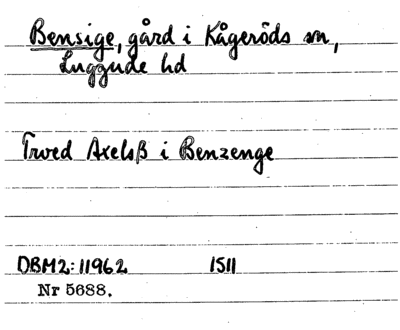 Bensige, gård i Kågeröds sn,
Luggude hd
Tword Axelsß i Benzenge
DBM2:11962 1511
Nr 5688.